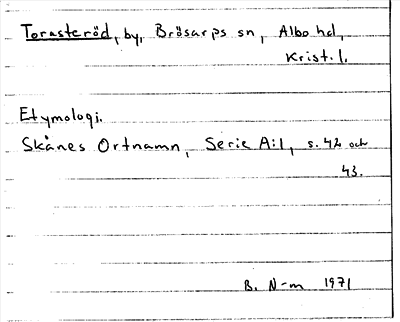 Torasteröd, by, Brösarps sn, Albo hd,
Krist. l.
Etymologi.
Skånes Ortnamn, Serie A:1, s. 42 och
43.
B. N-m 1971